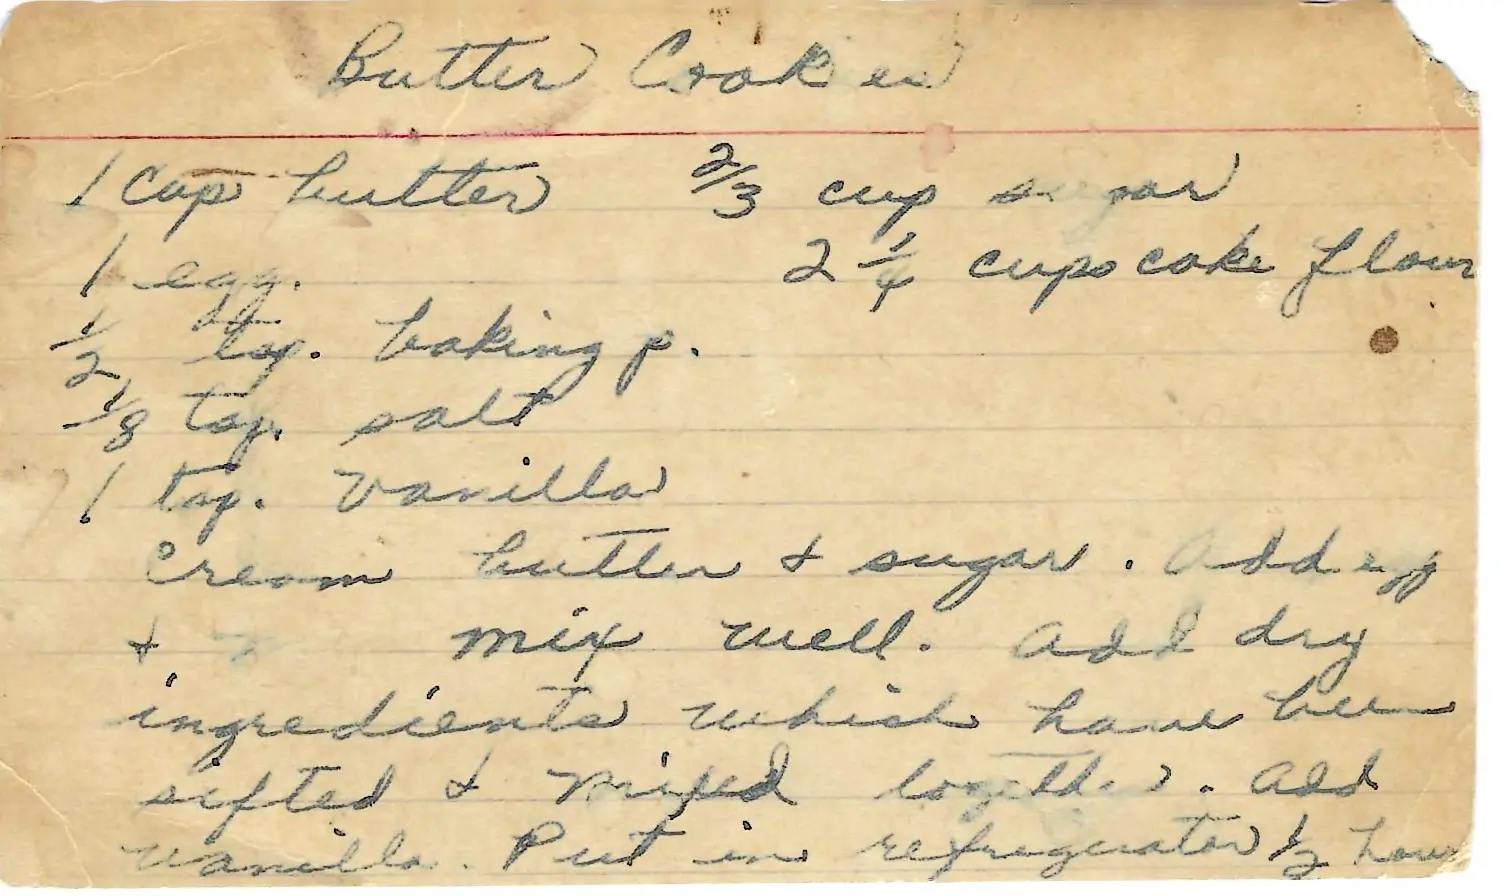 Butter Cookies
1 cup butter 2/3 cup sugar
1 egg. 2 1/4 cups cake flour
1/2 tsp. baking p.
1/8 tsp. salt
1 tsp. vanilla
Cream butter & sugar. Add egg
& mix well. Add dry
ingredients which have been
sifted & mixed together. Add
vanilla. Put in refrigerator 1/2 hour